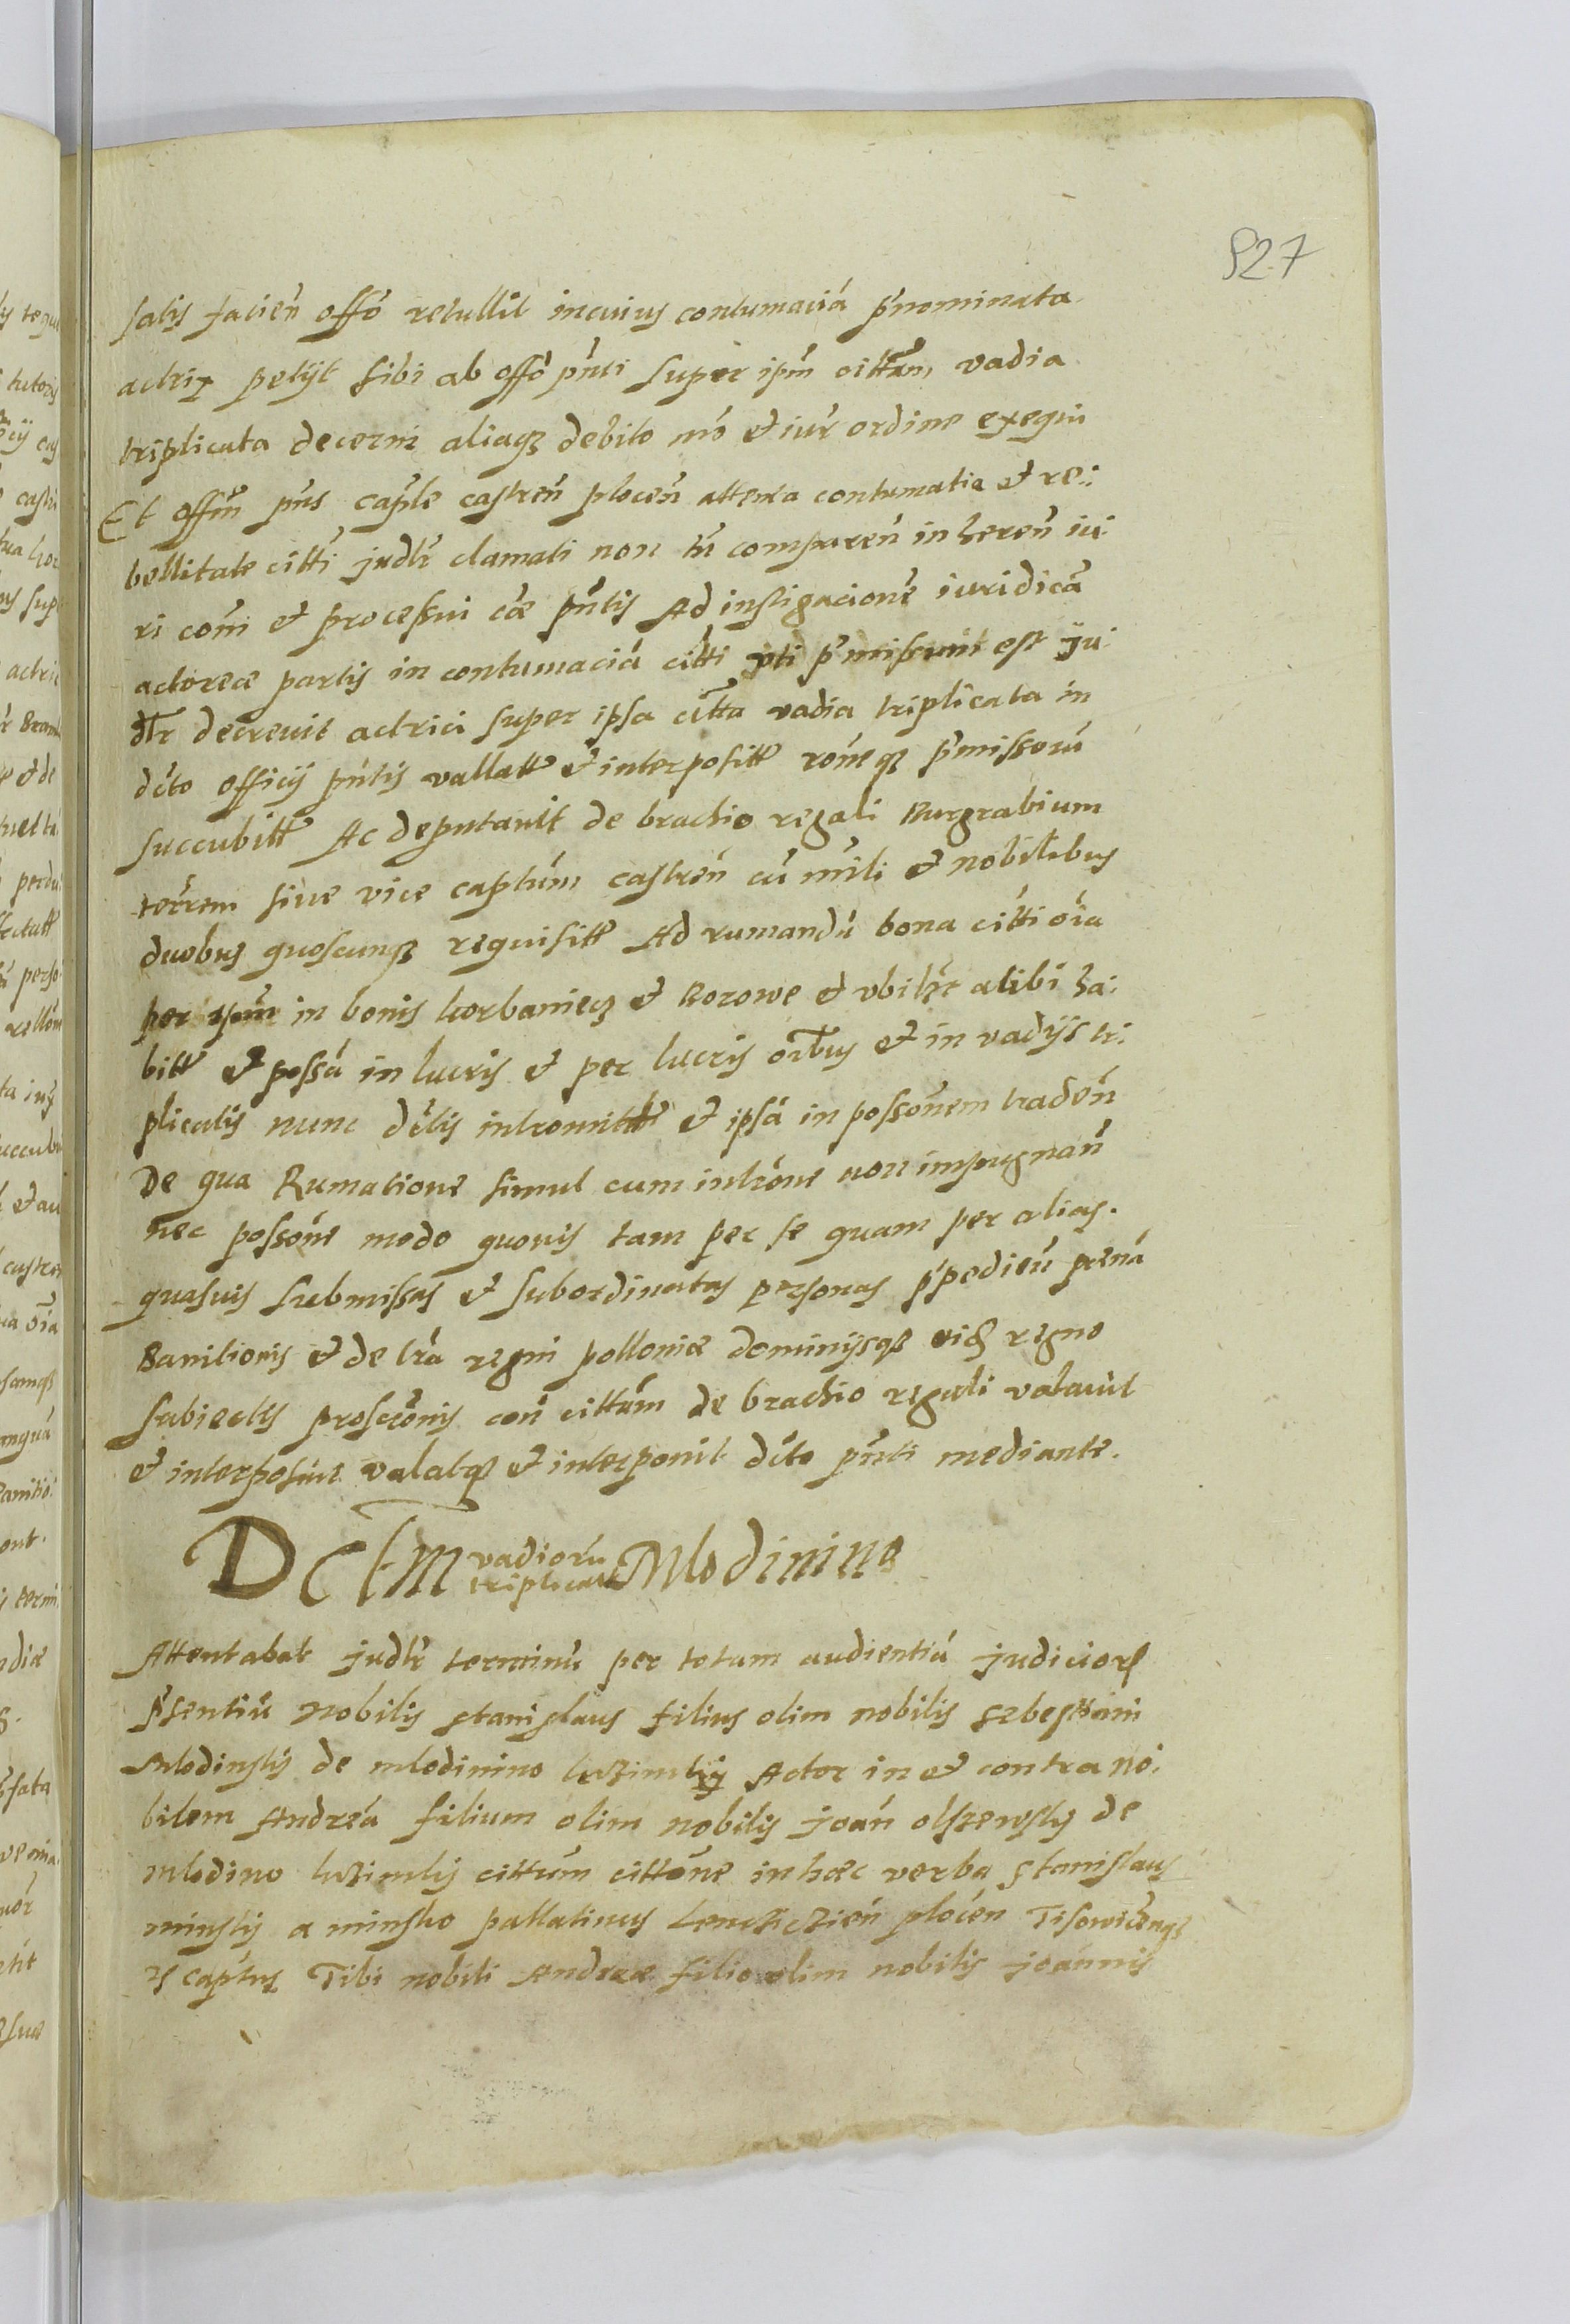 527
satis facień offō retullit in cuius contumaciā p̄nominata
actrix petijt sibi ab offō pn̄ti super ipm̄ citt̄um vadia
triplicata decerni aliaqȝ debito mō et iur̄ ordine exequi
Et offm̄ pn̄s cap̄le castren̄ plocen̄ attenta contumatia et re:
bellitate citt̄i judlr̄ clamati non tn̄ comparen̄ inheren̄ iu:
ri com̄ et processui cāe pn̄tis Ad instigacionē iuridicā
actoreæ partis in contumaciā citt̄i vti p̄missum est ju:
dlr̄ decreuit actrici super ipsa citt̄a vadia triplicata in
dc̄to officij pn̄tis vallatt̄ et interpositt̄ rōneqȝ p̄missorū
succubitt̄ Ac deputauit de brachio regali Burgrabium
terr̄em siue vice capt̄um castren̄ cū mr̄li et nobilibus
duobus quoscunqȝ requisitt̄ Ad rumandū bona citt̄i oīa
per ipm̄ in bonis et Borowe et vbilȝt alibi ha:
bitt̄ et possā in lucris et per lucris oībus et in vadijs tri:
plicatis nunc dc̄tis intromitt̄ et ipsā in possōnem traden̄
De qua Rumatione simul cum intrōne non impugnan̄
nec possōne modo quouis tam per se quam per alias.
quasuis submissas et subordinatas personas p̄pedien̄ penā
Banitionis et de tr̄a regni polloniæ dominijsqȝ eidȝ regno
subiectis proscrōnis con̄ citt̄um de brachio regali valauit
et interposuit valatqȝ et interponit dc̄to pn̄ti mediante.
DCTM vadiorū triplicatt̄ Mlodinino
Attentabat judlr̄ terminū per totum audientiā judicior̄
p̄sentiū Nobilis stanislaus filius olim nobilis sebestiani
Mlodinskij de mlodinino Actor in et contra no:
bilem Andreā filium olim nobilis joan̄ olszewskij de
mlodino citt̄um citt̄one in hæc verba stanislaus
minskij a minsko pallatinus Lenchczien̄ plocen̄
capt̄us Tibi nobili Andreæ filio olim nobilis joannis